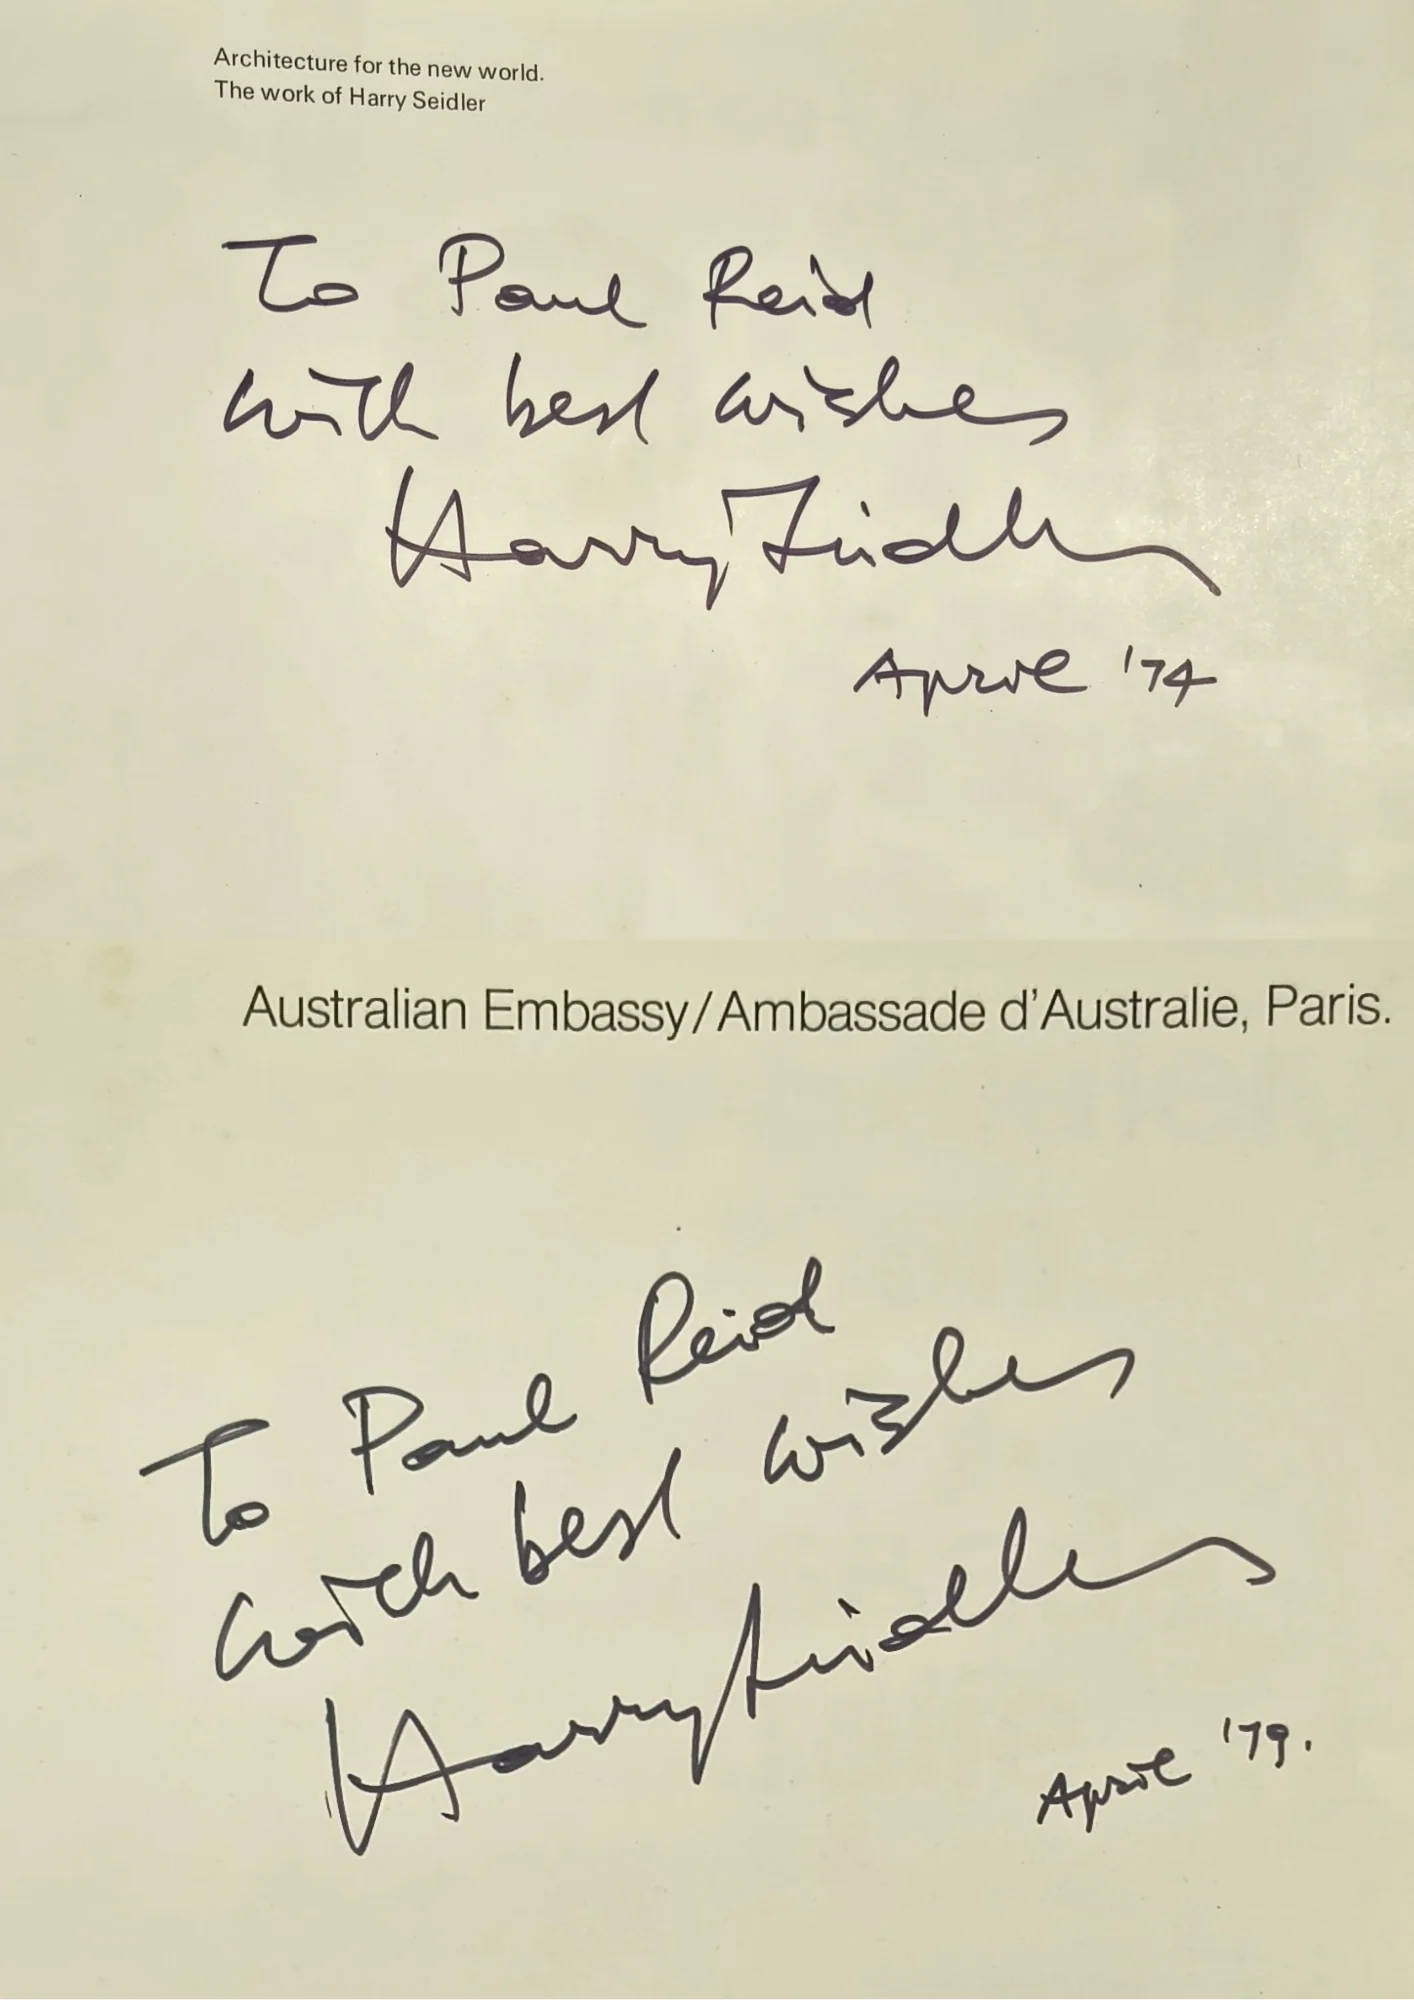 Architecture for the new world.
The work of Harry Seidler
To Paul Reid
with best wishes
Harry Seidler
April '74
Australian Embassy/Ambassade d'Australie, Paris.
To Paul Reid
with best wishes
Harry Seidler
April '79.